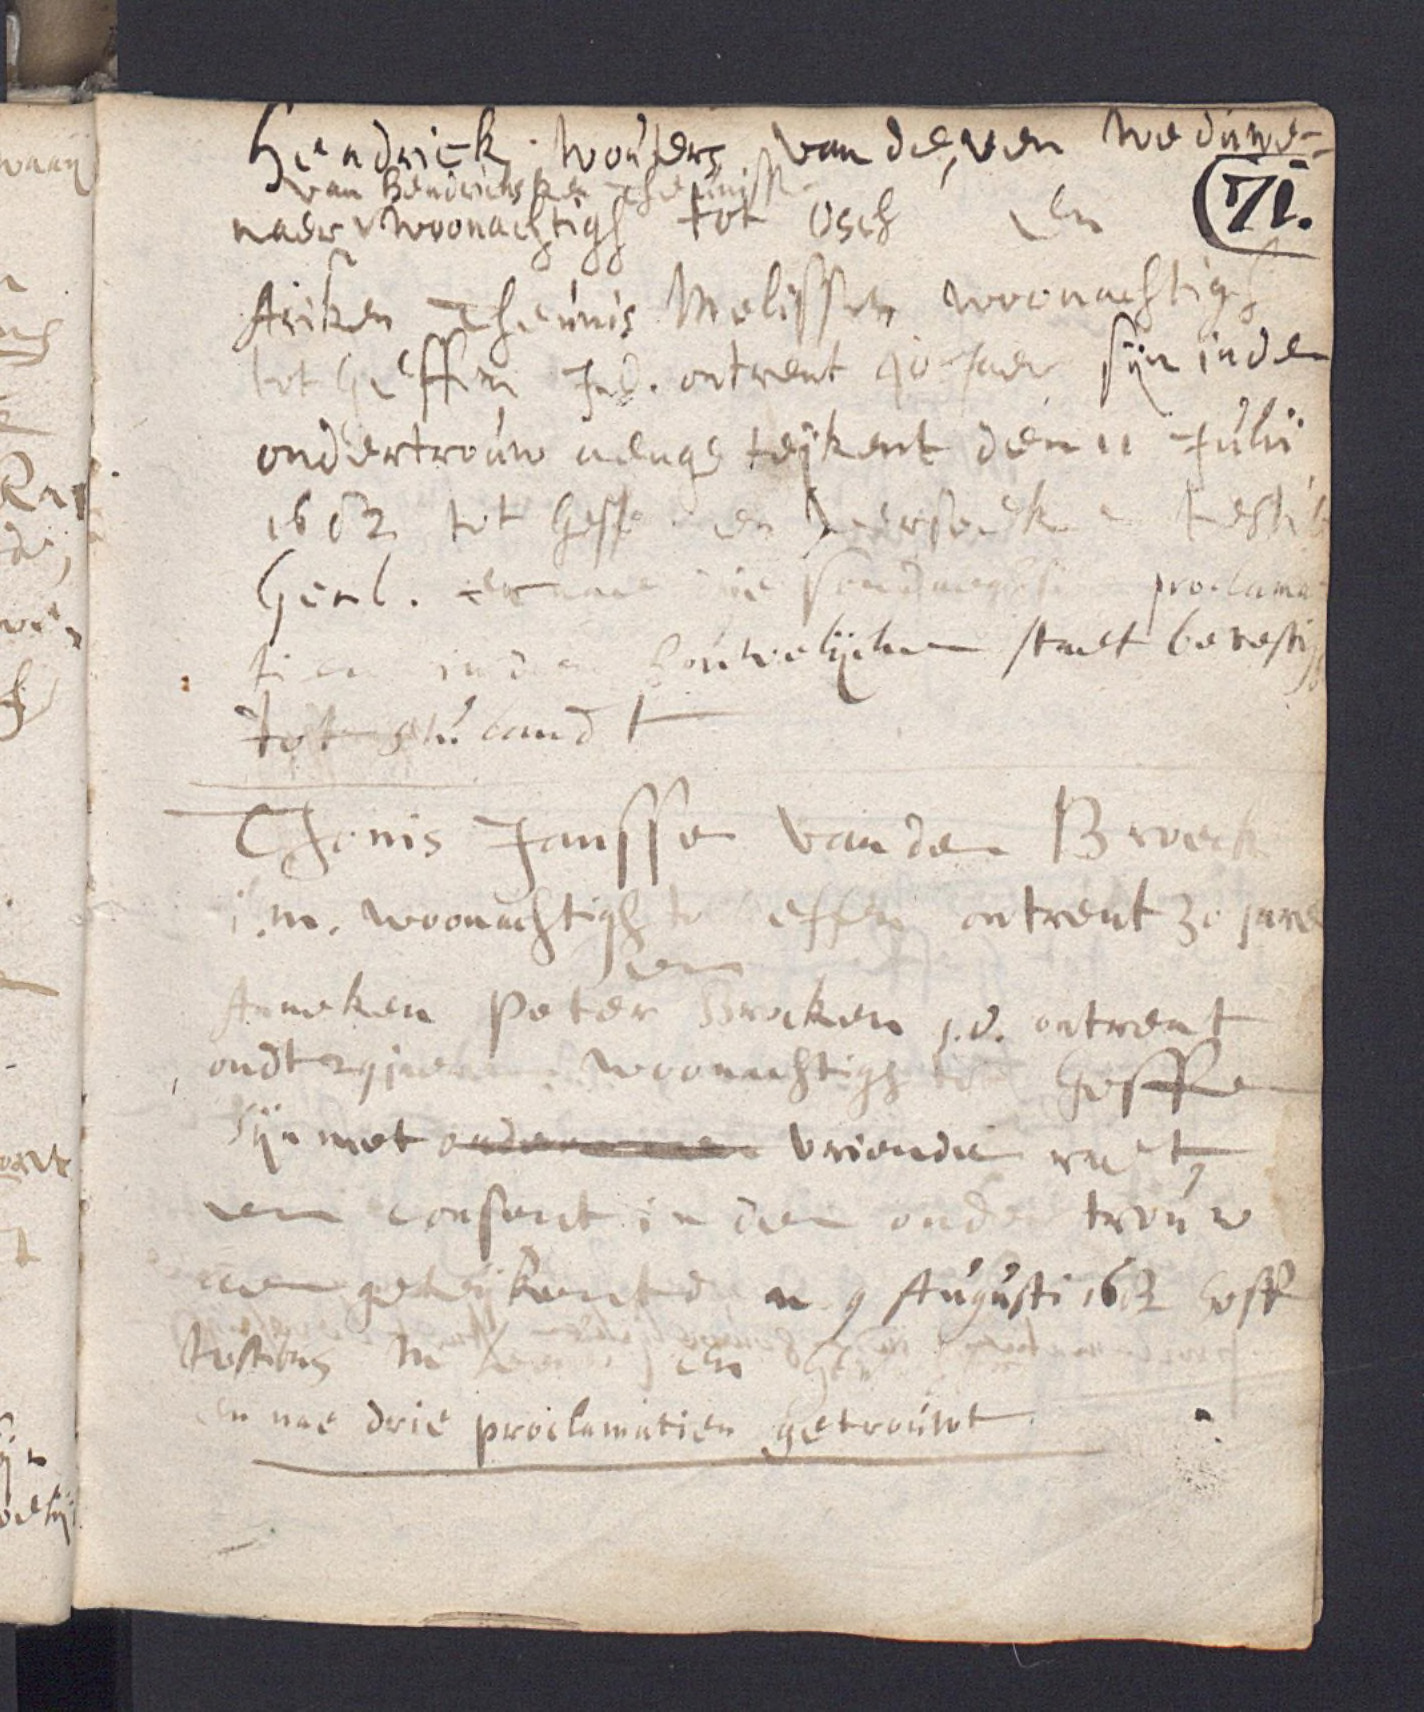 Hendrick Wouters van de ven Weduwe-
van Hendricksken Theunisse
71.
naer woonachtigh tot Osch en
Ariken Theunis Melissen woonachtigh
tot Geffen J.d. ontrent 40 Jaer sijn inde
ondertrouw aenge teijkent den 11 Julii
1662 tot Geffe en
Gerl. en nae drie sondaeghse proclama
tien inden houwelijcken staet bevestigh
tot nulandt
Thonis Jansse vanden Broeck
j.m. woonachtigh to Geffen ontrent 30 jare
en
Anneken Peter Brocken j.d. ontrent
oudt 29 jaeren woonachtigh tot Geffe
Sijn met vrienden raet,
en consent in den onder trouw
aen geteijkent den 9 Augusti 1662 Geff
testibus en
en nae drie proclamatien getrouwt